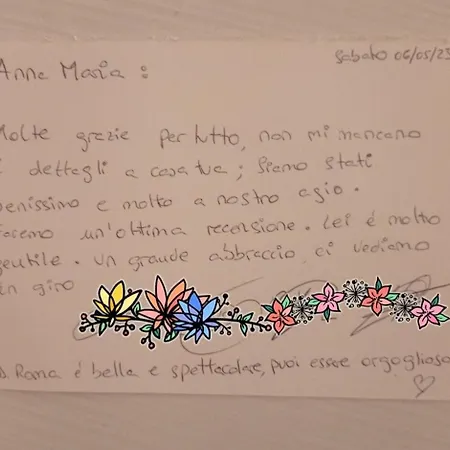 Sabato 06/05/23
Anna Maria :
Molte grazie per tutto, non mi mancano
i dettagli a casa tua ; siamo stati
benissimo e molto a nostro agio.
Faremo un'ottima recensione. Lei é molto
gentile. Un grande abbraccio, ci vediamo
in giro
Roma é bella e spettacolare, puoi essere orgogliosa